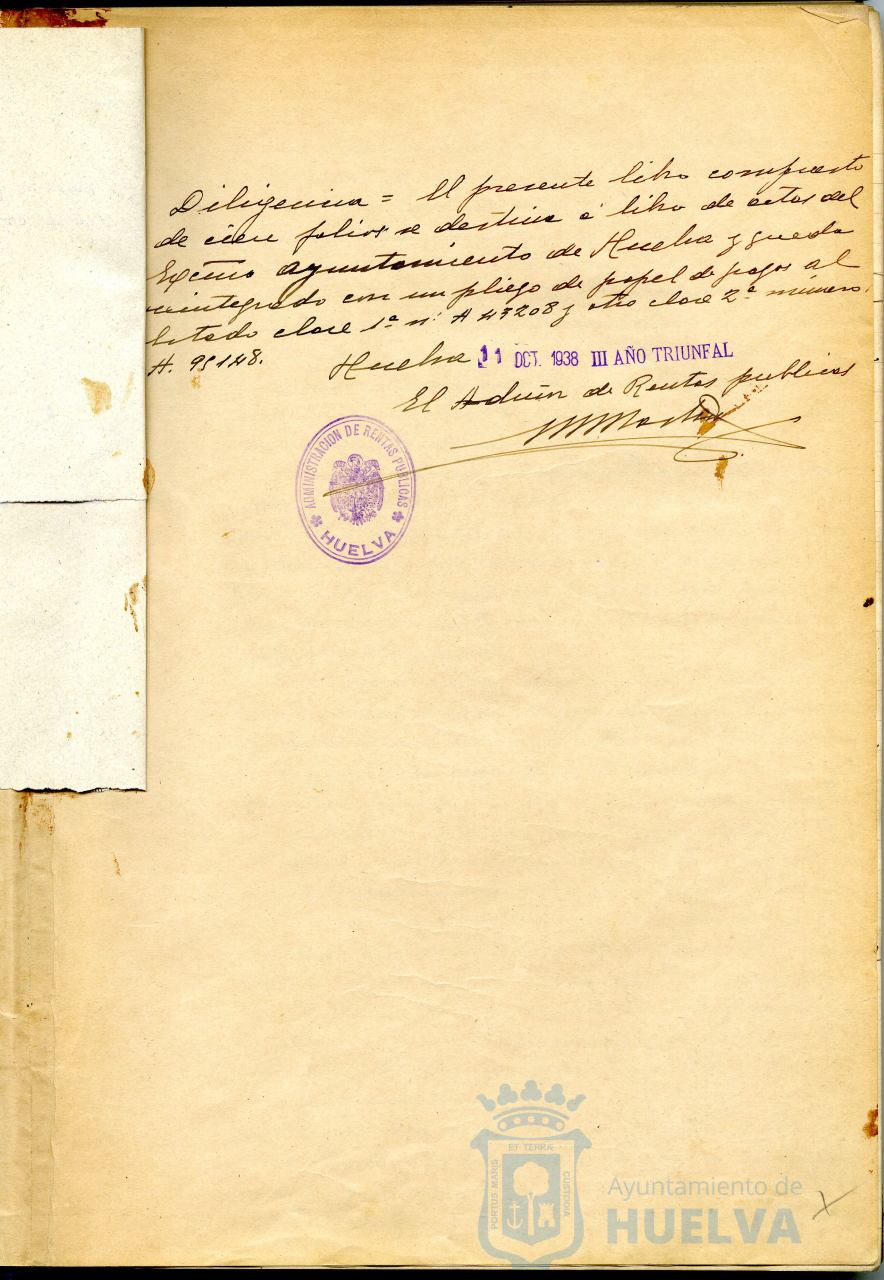 Diligencia = El presente libro compuesto
de cien folios se destina á libro de actas del
Excmo Ayuntamiento de Huelva y queda
reintegrado con un pliego de papel de pagos al
Estado clase 1ª nº A 43208 y otro clase 2ª número
A. 95148.
Huelva 11 OCT. 1938 III AÑO TRIUNFAL
El Admon de Rentas publicas
ADMINISTRACION DE RENTAS PUBLICAS
HUELVA
ET TERRÆ
PORTUS MARIS
CUSTODIA
Ayuntamiento de
HUELVA